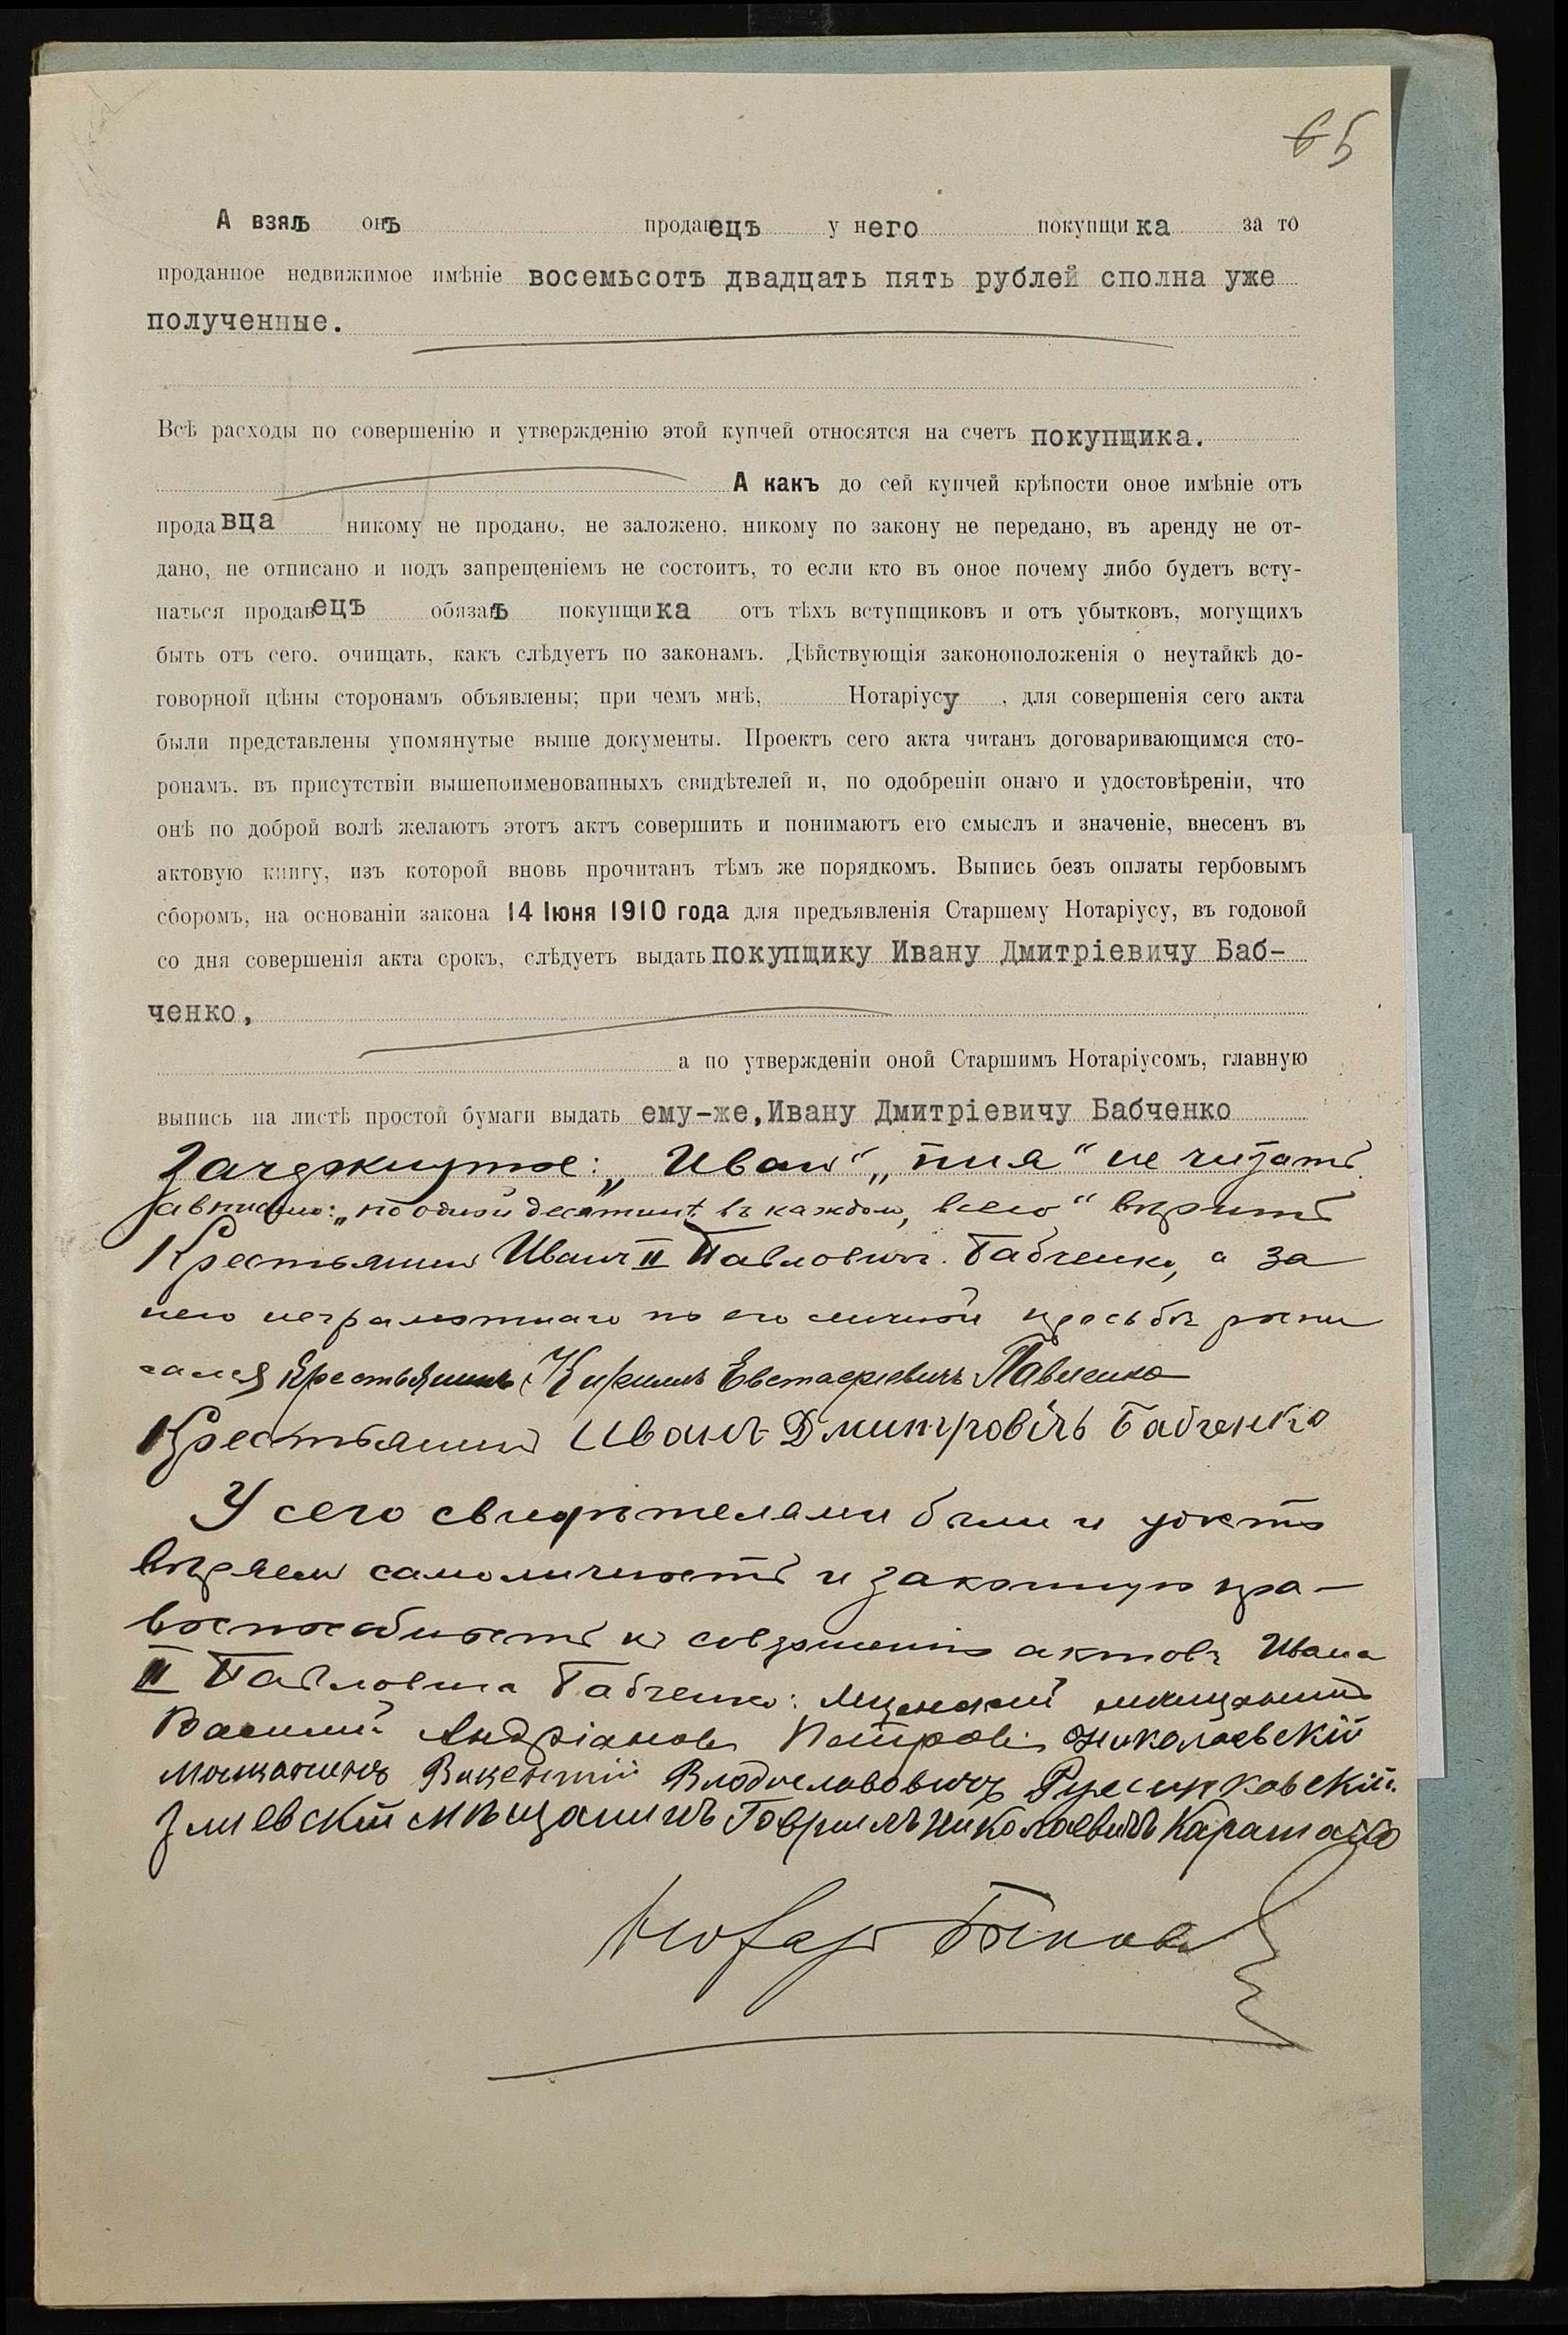 65
А взялъ онъ продавецъ у него покупщика за то
проданное недвижимое имѣніе восемьсотъ двадцать пять рублей сполна уже
полученные.
Всѣ расходы по совершенію и утвержденію этой купчей относятся на счетъ покупщика.
А какъ до сей купчей крѣпости оное имѣніе отъ
продавца никому не продано, не заложено, никому по закону не передано, въ аренду не от-
дано, не отписано и подъ запрещеніемъ не состоитъ, то если кто въ оное почему либо будетъ всту-
паться продавецъ обязанъ покупщика отъ тѣхъ вступщиковъ и отъ убытковъ, могущихъ
быть отъ сего, очищать, какъ слѣдуетъ по законамъ. Дѣйствующія законоположенія о неутайкѣ до-
говорной цѣны сторонамъ объявлены; при чемъ мнѣ, Нотаріусу, для совершенія сего акта
были представлены упомянутые выше документы. Проектъ сего акта читанъ договаривающимся сто-
ронамъ, въ присутствіи вышепоименованныхъ свидѣтелей и, по одобреніи онаго и удостовѣреніи, что
онѣ по доброй волѣ желаютъ этотъ актъ совершить и понимаютъ его смыслъ и значеніе, внесенъ въ
актовую книгу, изъ которой вновь прочитанъ тѣмъ же порядкомъ. Выпись безъ оплаты гербовымъ
сборомъ, на основаніи закона 14 Іюня 1910 года для предъявленія Старшему Нотаріусу, въ годовой
со дня совершенія акта срокъ, слѣдуетъ выдать покупщику Ивану Дмитріевичу Баб-
ченко,
а по утвержденіи оной Старшимъ Нотаріусомъ, главную
выпись на листѣ простой бумаги выдать ему-же, Ивану Дмитріевичу Бабченко
Зачеркнутое: „Иван“ „пия“ не читать
„по одной десятинѣ въ каждом, всего“ вѣрить
Крестьянин Иван II Павлович Бабченко, а за
него неграмотнаго по его личной просьбѣ роспи
сался Крестьянинъ Кирилъ Евстафіевичъ Павленко
Крестьянин Иванъ Дмитровічъ Бабченко
У сего свидѣтелями были и удосто
вѣряем самоличность и законную пра-
воспособность к совершенію актовъ Ивана
II Павловича Бабченко: мѣщанинъ
Василий Андріанов Петров. Николаевскій
мѣщанинъ Викентий Владиславовичъ
Зміевскій мѣщанинъ Гавриилъ Николаевичъ
Нотар Быков